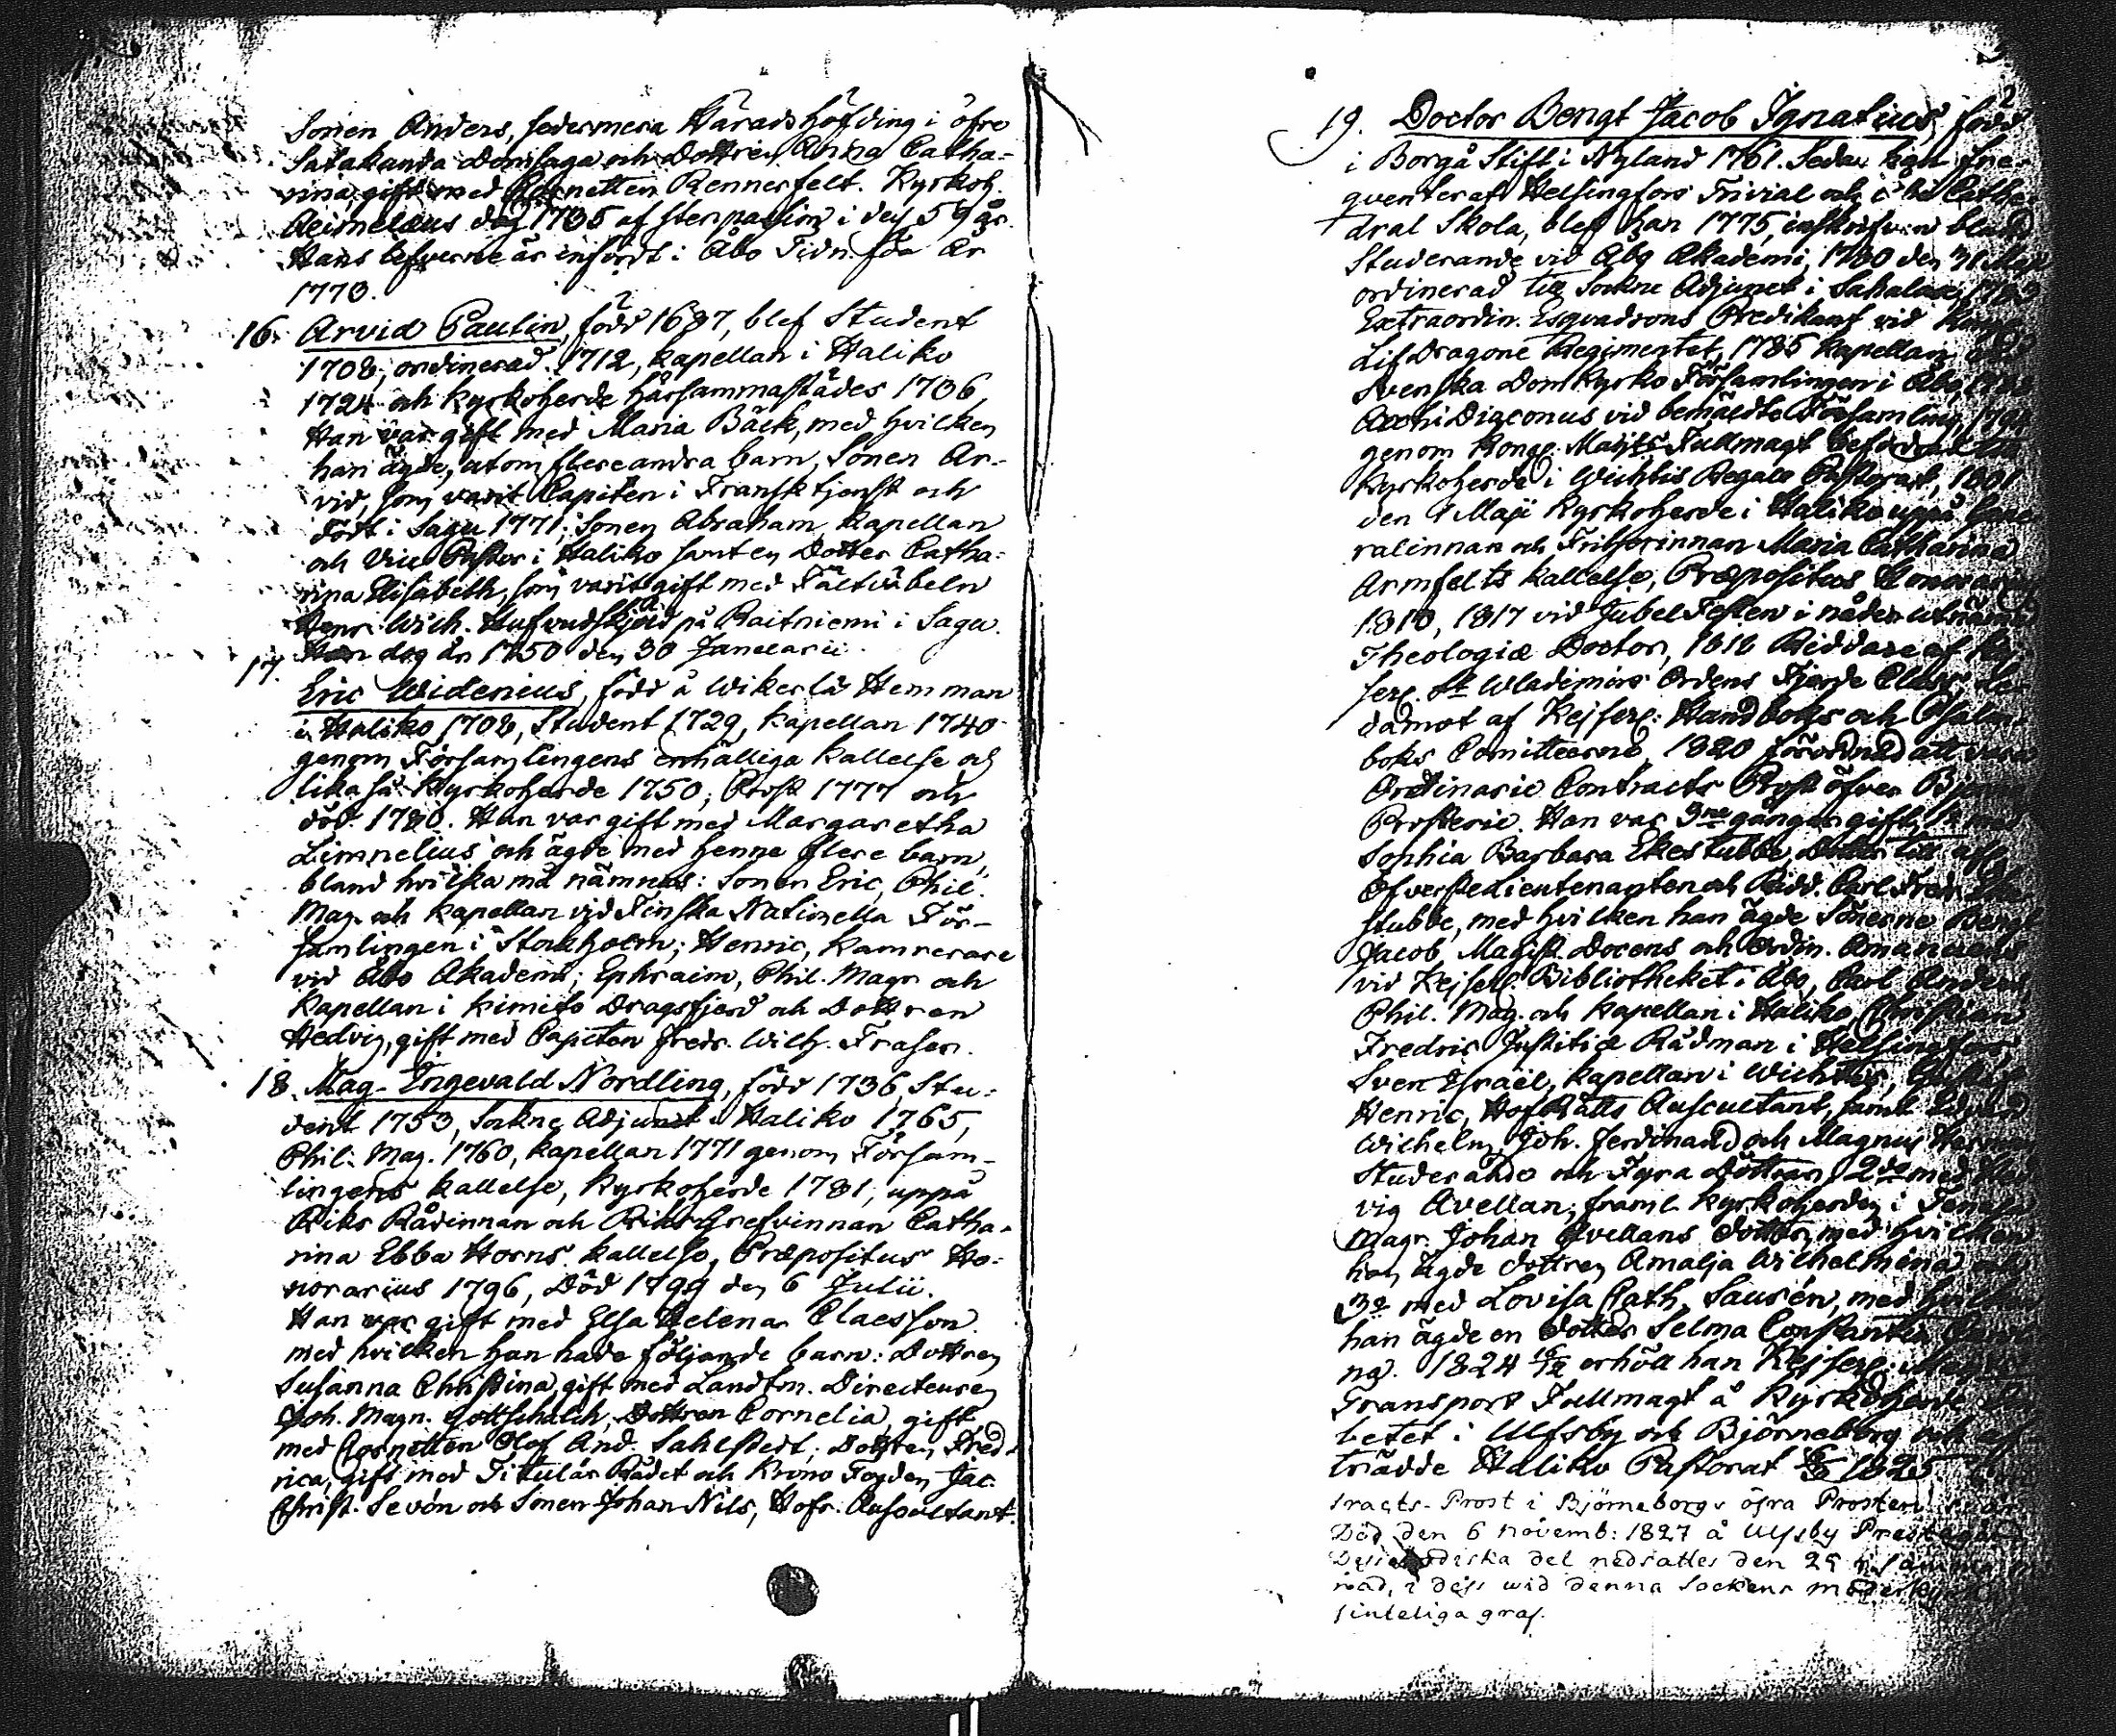 Sonen Anders, sedermera Häradshöfding i öfre
Satakunda Domsaga och Dottren Anna Catha-
rina gift med Cornetten Rennerfelt. Kyrkoh.
Aeimelæus dog 1735 af stenpassion i dess 59 år.
Hans lefverne är infördt i Åbo Tidn. för År
1778.
16. Arvid Paulin, född 1687, blef Student
1708, ordinerad 1712, kapellan i Haliko
1724 och kyrkoherde härsammastädes 1736,
Han var gift med Maria Bäck, med hvilken
han ägde, utom flere andra barn, Sonen Ar-
vid, som varit Capiten i Fransk tjenst och
dödt i Sagu 1771; Sonen Abraham kapellan
och Vice Pastor i Haliko samt en Dotter Catha-
rina Elisabeth, som varit gift med Fältväbeln
Henr. Wilh. Hufvudskjöld på Raitniemi i Sagu.
Han dog år 1750 den 30 Januarii.
17. Eric Widenius, född å Wikerlä Hemman
i Haliko 1708, Student 1729, kapellan 1740
genom Församlingens enhälliga kallelse och
likaså Kyrkoherde 1750; Prost 1777 och
död 1780. Han var gift med Margaretha
Limnelius och ägde med henne flere barn,
bland hvilka må nämnas: Sonen Eric, Phil.
Mag. och kapellan vid Finska Nationella För-
samlingen i Stockholm; Henric, Kamrerare
vid Åbo Akademi; Ephraim, Phil. Magr och
Kapellan i Kimito Dragsfjerd och Dottren
Hedvig, gift med Capiten Fredr. Wilh. Fraser.
18. Mag. Ingevald Nordling, född 1736, Stu-
dent 1753, Sockne Adjunct i Haliko 1765,
Phil. Mag. 1760, kapellan 1771 genom Försam-
lingens kallelse, Kyrkoherde 1781, uppå
Riks Rådinnan och Riks Grefvinnan Catha-
rina Ebba Horns kallelse, Præpositus Ho-
norarius 1796, Död 1799 den 6 Julii.
Han var gift med Elsa Helena Claesson
med hvilken han hade följande barn: Dottren
Susanna Christina, gift med Landtm. Directeuren
Joh. Magn. Gottschalch, Dottren Cornelia, gift
med Cornetten Olof And. Sahlstedt; Dottren Fred-
rica, gift med Titulär Rådet och Krono Fogden Jac.
Christ. Sevón och Sonen Johan Nils, Hofr. Auscultant.
19. Doctor Bengt Jacob Ignatius, född
i Borgå Stift i Nyland 1761. Sedan han fre-
quenterat Helsingfors Trivial och Cathe-
dral Skola, blef han 1775, inskrifven bland
Studerande vid Åbo Akademi, 1780 den 31
ordinerad till Sockne Adjunct i Sahalax,
Extraordin. Esquadrons Predikant vid
Lif Dragone Regimentet, 1785 kapellan
Svenska Domkyrko Församlingen i Åbo,
Archi Diaconus vid bemäldte Församling,
genom Kongl. Maj:ts Fullmagt befordrad
Kyrkoherde i Wichtis Regale Pastorat, 1801
den 1 Maji Kyrkoherde i Haliko uppå Gene-
ralinnan och Friherrinnan Maria Catharina
Armfelts kallelse, Præpositus Honorarius
1810, 1817 vid Jubel Festen i nåder utnämnd
Theologiæ Doctor, 1818 Riddare af Kej-
serl. St Wladimirs Ordens Fjerde Class, Le-
damot af Kejserl. Handboks och Psalm-
boks Comitteerne, 1820 förordnad att vara
Ordinarie Contracts Prost öfver
Prosterie. Han var 3ne gånger gift,
Sophia Barbara Ekestubbe, Dotter till
Öfverste Lieutenanten och Ridd. Carl Fredr.
stubbe, med hvilken han ägde Sönerne Bengt
Jacob, Magist. Docens och Ordin. Amanuens
vid Kejserl. Bibliotheket i Åbo, Carl Anders
Phil. Mag. och kapellan i Haliko, Christian
Fredric Justitiæ Rådman i Helsingfors,
Sven Israël, kapellan i Wichtis,
Henric, Hof Rätts Auscultant, samt
Wilhelm, Joh. Ferdinand och Magnus
Studerande och Fyra Döttrar, 2do med Hed-
vig Avellan, framl. Kyrkoherden i
Magr. Johan Avellans Dotter, med hvilken
han ägde dottren Amalja Wilhelmina och
3o med Lovisa Cath. Sausén, med hvilken
han ägde en dotter Selma Constantia
na. 1824 erhöll han Kejserl.
Transport Fullmagt å Kyrkoherde
betet i Ulfsby och Björneborg och
trädde Haliko Pastorat 1825.
tracts-Prost i Björneborgs öfra Prosteri
Död den 6 novemb: 1827 å Ulfsby Prästgård
del nedsattes den 29
nad, i dess wid denna Sockens moderkyrka
sinteliga graf.